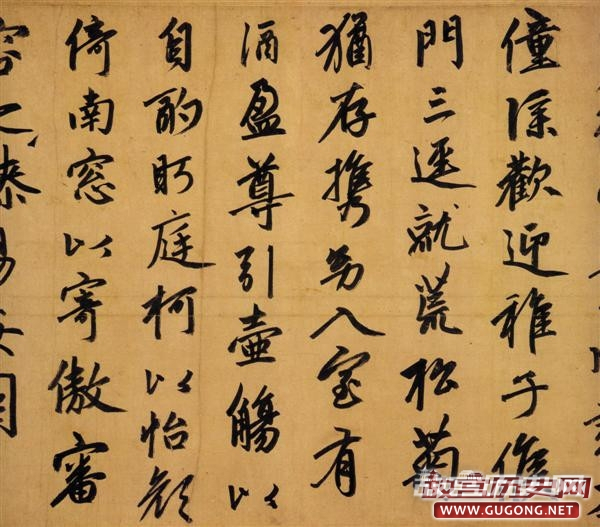 僮僕歡迎稚子候
門三逕就荒松菊
猶存携幼入室有
酒盈尊引壺觴以
自酌眄庭柯以怡顔
倚南窓以寄傲審
容之膝易安園
故宫历史网
WWW.GUGONG.NET